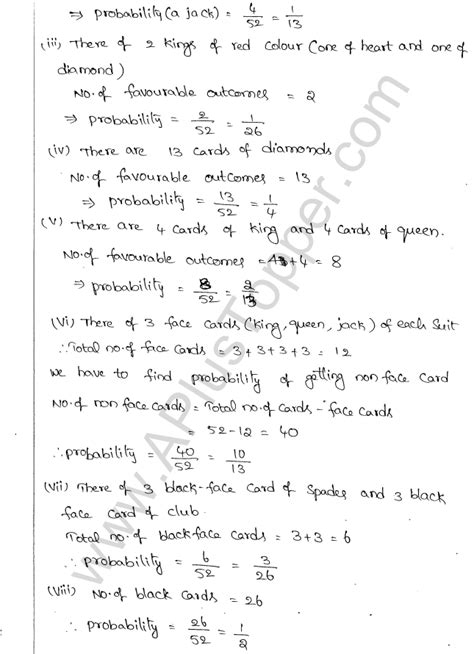 ⇒ probability (a jack) = 4/52 = 1/13
(iii) There of 2 kings of red colour (one of heart and one of
diamond)
No. of favourable outcomes = 2
⇒ probability = 2/52 = 1/26
(iv) There are 13 cards of diamonds
No. of favourable outcomes = 13
⇒ probability = 13/52 = 1/4
(V) There are 4 cards of king and 4 cards of queen.
No. of favourable outcomes = 4+4 = 8
⇒ probability = 8/52 = 2/13
(Vi) There of 3 face cards (king, queen, jack) of each suit
∴ Total no. of face cards = 3+3+3+3 = 12
we have to find probability of getting non face card
No. of non face cards = Total no. of cards - face cards
= 52-12 = 40
∴ probability = 40/52 = 10/13
(Vii) There of 3 black-face card of spades and 3 black
face card of club.
Total no. of black face cards = 3+3 = 6
∴ probability = 6/52 = 3/26
(Viii) No. of black cards = 26
∴ probability = 26/52 = 1/2
www.APlusTopper.com